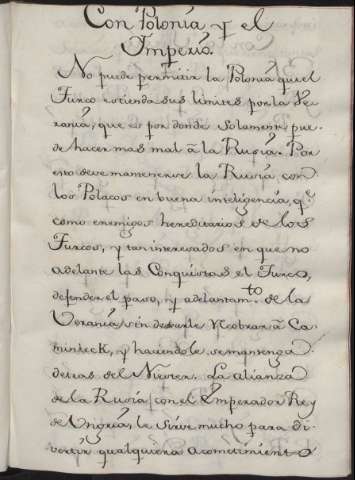 Con Polonia y el
Imperio
No puede permitir la Polonia que el
Turco estienda sus limites por la Vc-
rania, que es por donde solamente pue-
de hacer mas mal â la Rusia. Por
esto deve mantenerse la Rusia con
los Polacos en buena inteligencia, qe.
como enemigos hereditarios de los
Turcos, y tan interesados en que no
adelante las Conquistas el Turco,
defender el paso, y adelantamto. de la
Vcrania sin dexarle recobrar â Ca-
minieck, y haciendole se mantenga
detras del Niester. La alianza
de la Rusia con el Emperador Rey
de Ungria, le sirve mucho para di-
vertir qualquiera acometimiento